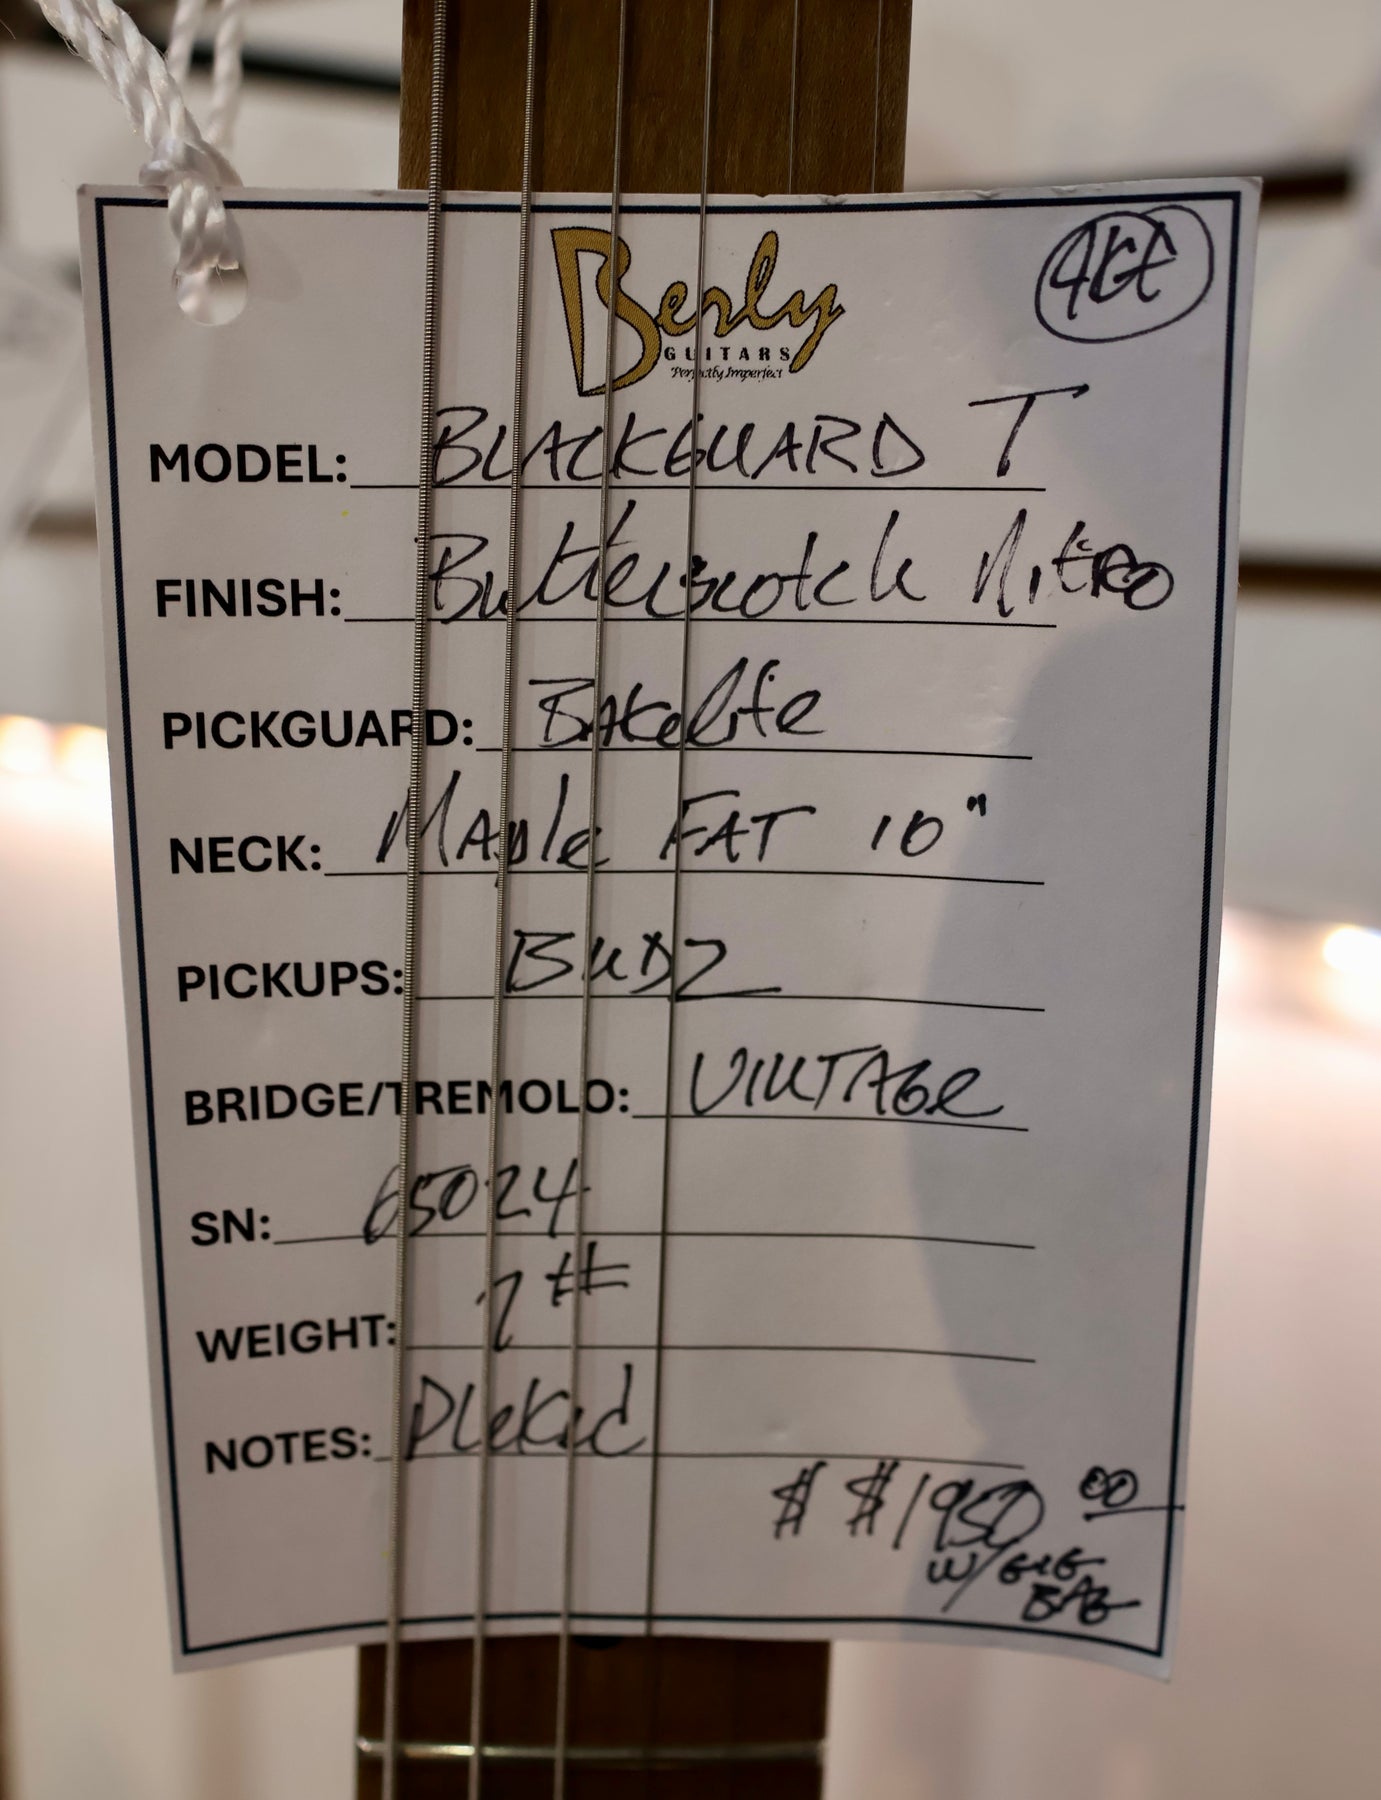 Berly
GUITARS
"Perfectly Imperfect"
MODEL: BLACKGUARD T
FINISH: Butterscotch Nitro
PICKGUARD: Bakelite
NECK: Maple FAT 10"
PICKUPS: BUDZ
BRIDGE/TREMOLO: VINTAGE
SN: 65024
WEIGHT: 7#
NOTES: Pleked
$ $1950 00
W/ GIG
BAG